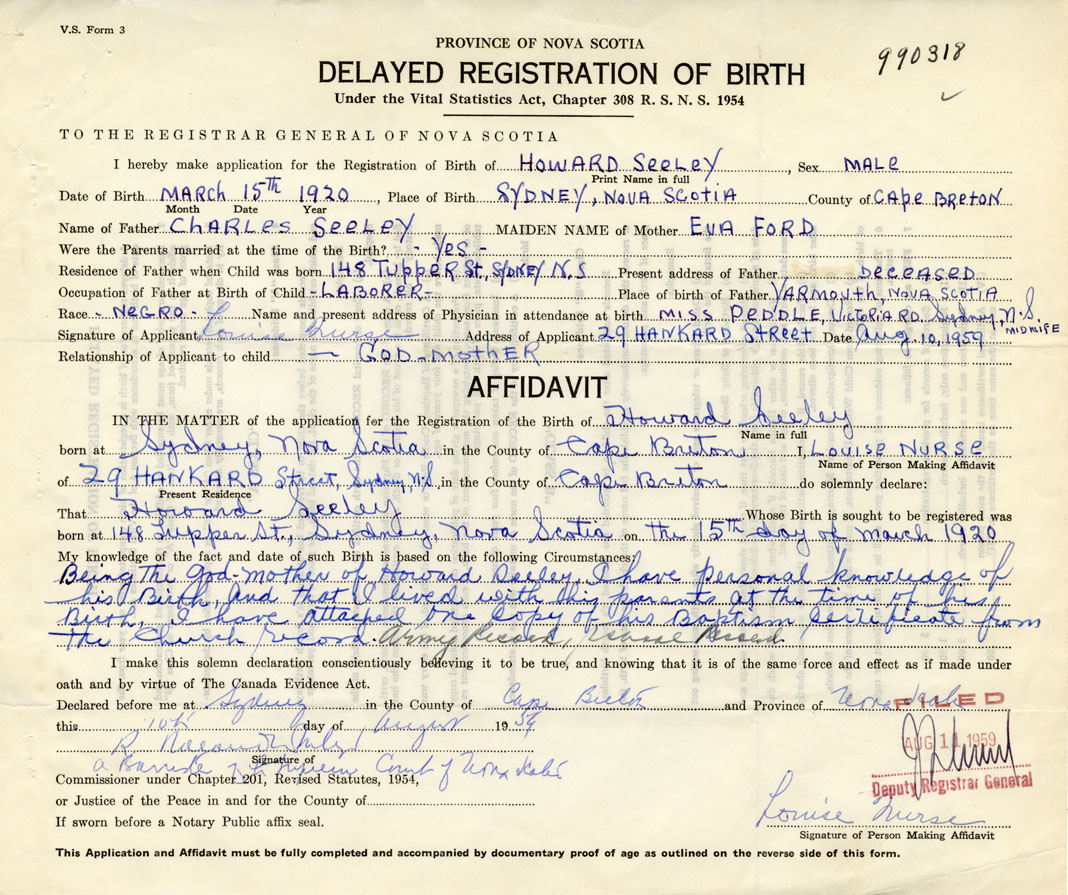 V.S. Form 3
PROVINCE OF NOVA SCOTIA
990318
DELAYED REGISTRATION OF BIRTH
Under the Vital Statistics Act, Chapter 308 R. S. N. S. 1954
TO THE REGISTRAR GENERAL OF NOVA SCOTIA
I hereby make application for the Registration of Birth of HOWARD SEELEY, Sex MALE
Print Name in full
Date of Birth MARCH 15th 1920, Place of Birth SYDNEY, NOVA SCOTIA County of CAPE BRETON
Month Date Year
Name of Father CHARLES SEELEY MAIDEN NAME of Mother EVA FORD
Were the Parents married at the time of the Birth? - Yes -
Residence of Father when Child was born 148 TUPPER St., SYDNEY N.S Present address of Father DECEASED
Occupation of Father at Birth of Child - LABORER - Place of birth of Father YARMOUTH, NOVA SCOTIA
Race - NEGRO - Name and present address of Physician in attendance at birth MISS PEDDLE, VICTORIA RD. Sydney, N.S.
MIDWIFE
Signature of Applicant Louise Nurse Address of Applicant 29 HANKARD STREET Date Aug. 10, 1959
Relationship of Applicant to child — GOD-MOTHER
AFFIDAVIT
IN THE MATTER of the application for the Registration of the Birth of Howard Seeley
Name in full
born at Sydney, Nova Scotia in the County of Cape Breton I, LOUISE NURSE
Name of Person Making Affidavit
of 29 HANKARD Street, Sydney, N.S., in the County of Cape Breton do solemnly declare:
Present Residence
That Howard Seeley Whose Birth is sought to be registered was
born at 148 Tupper St., Sydney, Nova Scotia on the 15th day of March 1920
My knowledge of the fact and date of such Birth is based on the following Circumstances:
Being the God-mother of Howard Seeley, I have personal knowledge of
his Birth, and that I lived with his parents at the time of his
Birth, I have attached one copy of his Baptism Certificate from
the Church record. Army Record, Record.
I make this solemn declaration conscientiously believing it to be true, and knowing that it is of the same force and effect as if made under
oath and by virtue of The Canada Evidence Act.
Declared before me at Sydney in the County of Cape Breton and Province of Nova Scotia
FILED
this 10th day of August 1959
AUG 11 1959
Signature of
a Barrister of Supreme Court of Nova Scotia
Commissioner under Chapter 201, Revised Statutes, 1954,
Deputy Registrar General
or Justice of the Peace in and for the County of
If sworn before a Notary Public affix seal.
Louise Nurse
Signature of Person Making Affidavit
This Application and Affidavit must be fully completed and accompanied by documentary proof of age as outlined on the reverse side of this form.